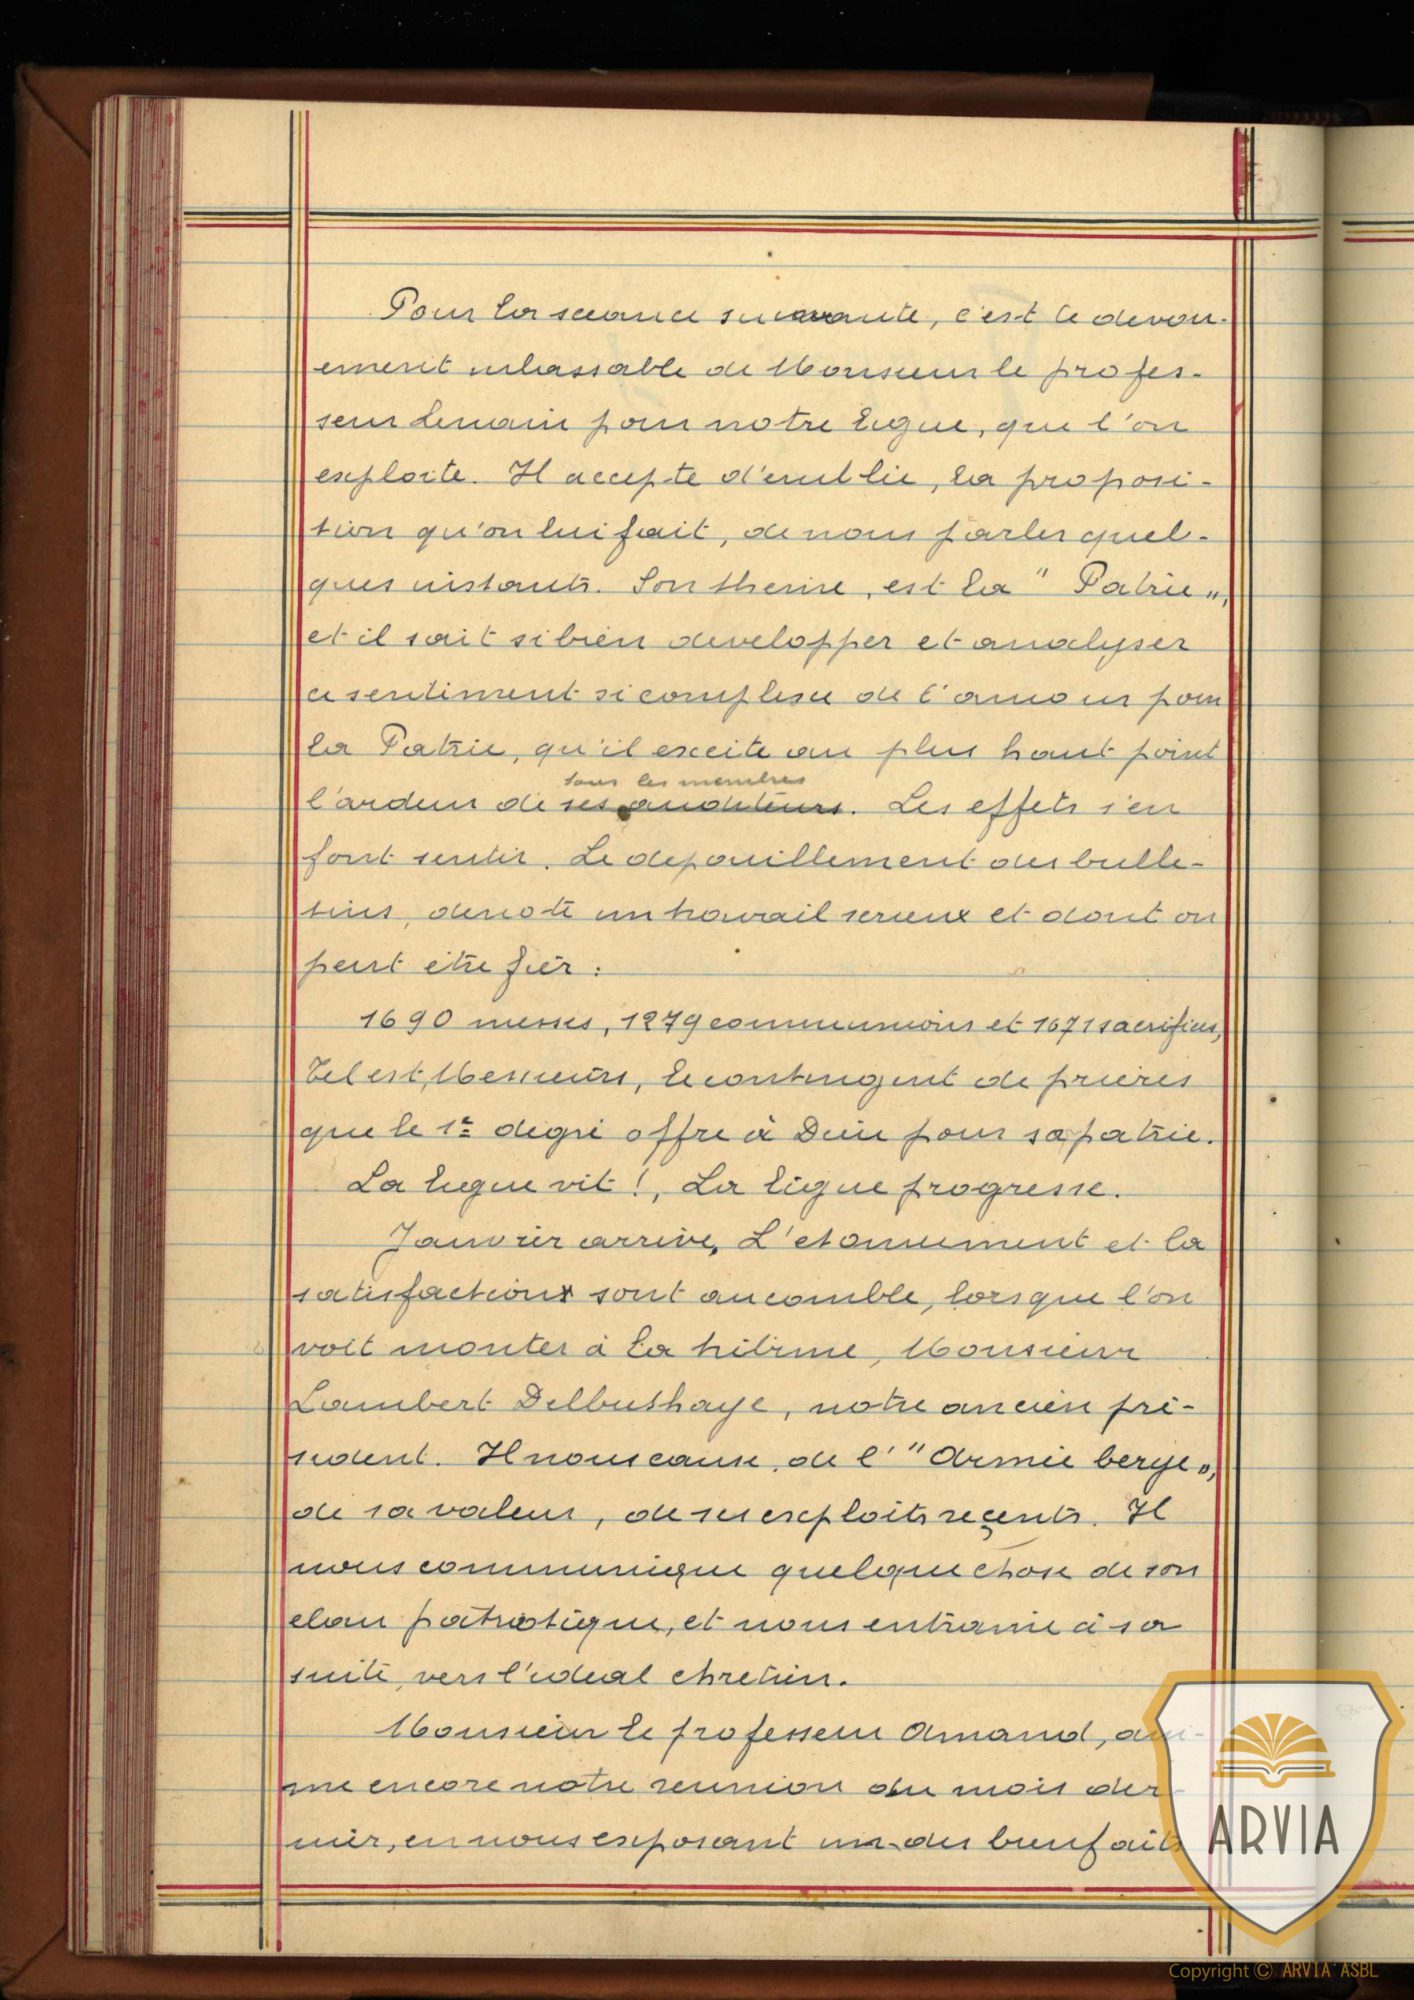 Pour la sceance suivante, c'est le devou-
ement inlassable de Monsieur le profes-
seur Lemain pour notre ligue, que l'on
exploite. Il accepte d'emblée, la proposi-
tion qu'on lui fait, de nous parler quel-
ques instants. Son theme, est la " Patrie ",
et il sait si bien developper et analyser
ce sentiment si complexe de l'amour pour
la Patrie, qu'il excite au plus haut point
tous les membres
l'ardeur de ses auditeurs. Les effets s'en
font sentir. Le depouillement des bulle-
tins, denote un travail serieux et dont on
peut être fier :
1690 messes, 1279 communions et 1671 sacrifices,
Tel est, Messieurs, le contingent de prières
que le 1er degré offre à Dieu pour sa patrie.
La ligue vit !, La ligue progresse.
Janvier arrive, L'etonnement et la
satisfaction sont au comble, lorsque l'on
voit monter à la tribune, Monsieur
Lambert Delbushaye, notre ancien pré-
sident. Il nous cause, de l' " Armée berge ",
de sa valeur, de ses exploits reçents. Il
nous communique quelque chose de son
elan patriotique, et nous entraine à sa
suite, vers l'ideal chretien.
Monsieur le professeur Amand, ani-
me encore notre reunion du mois der-
nier, en nous exposant un des bienfaits
ARVIA
Copyright © ARVIA ASBL